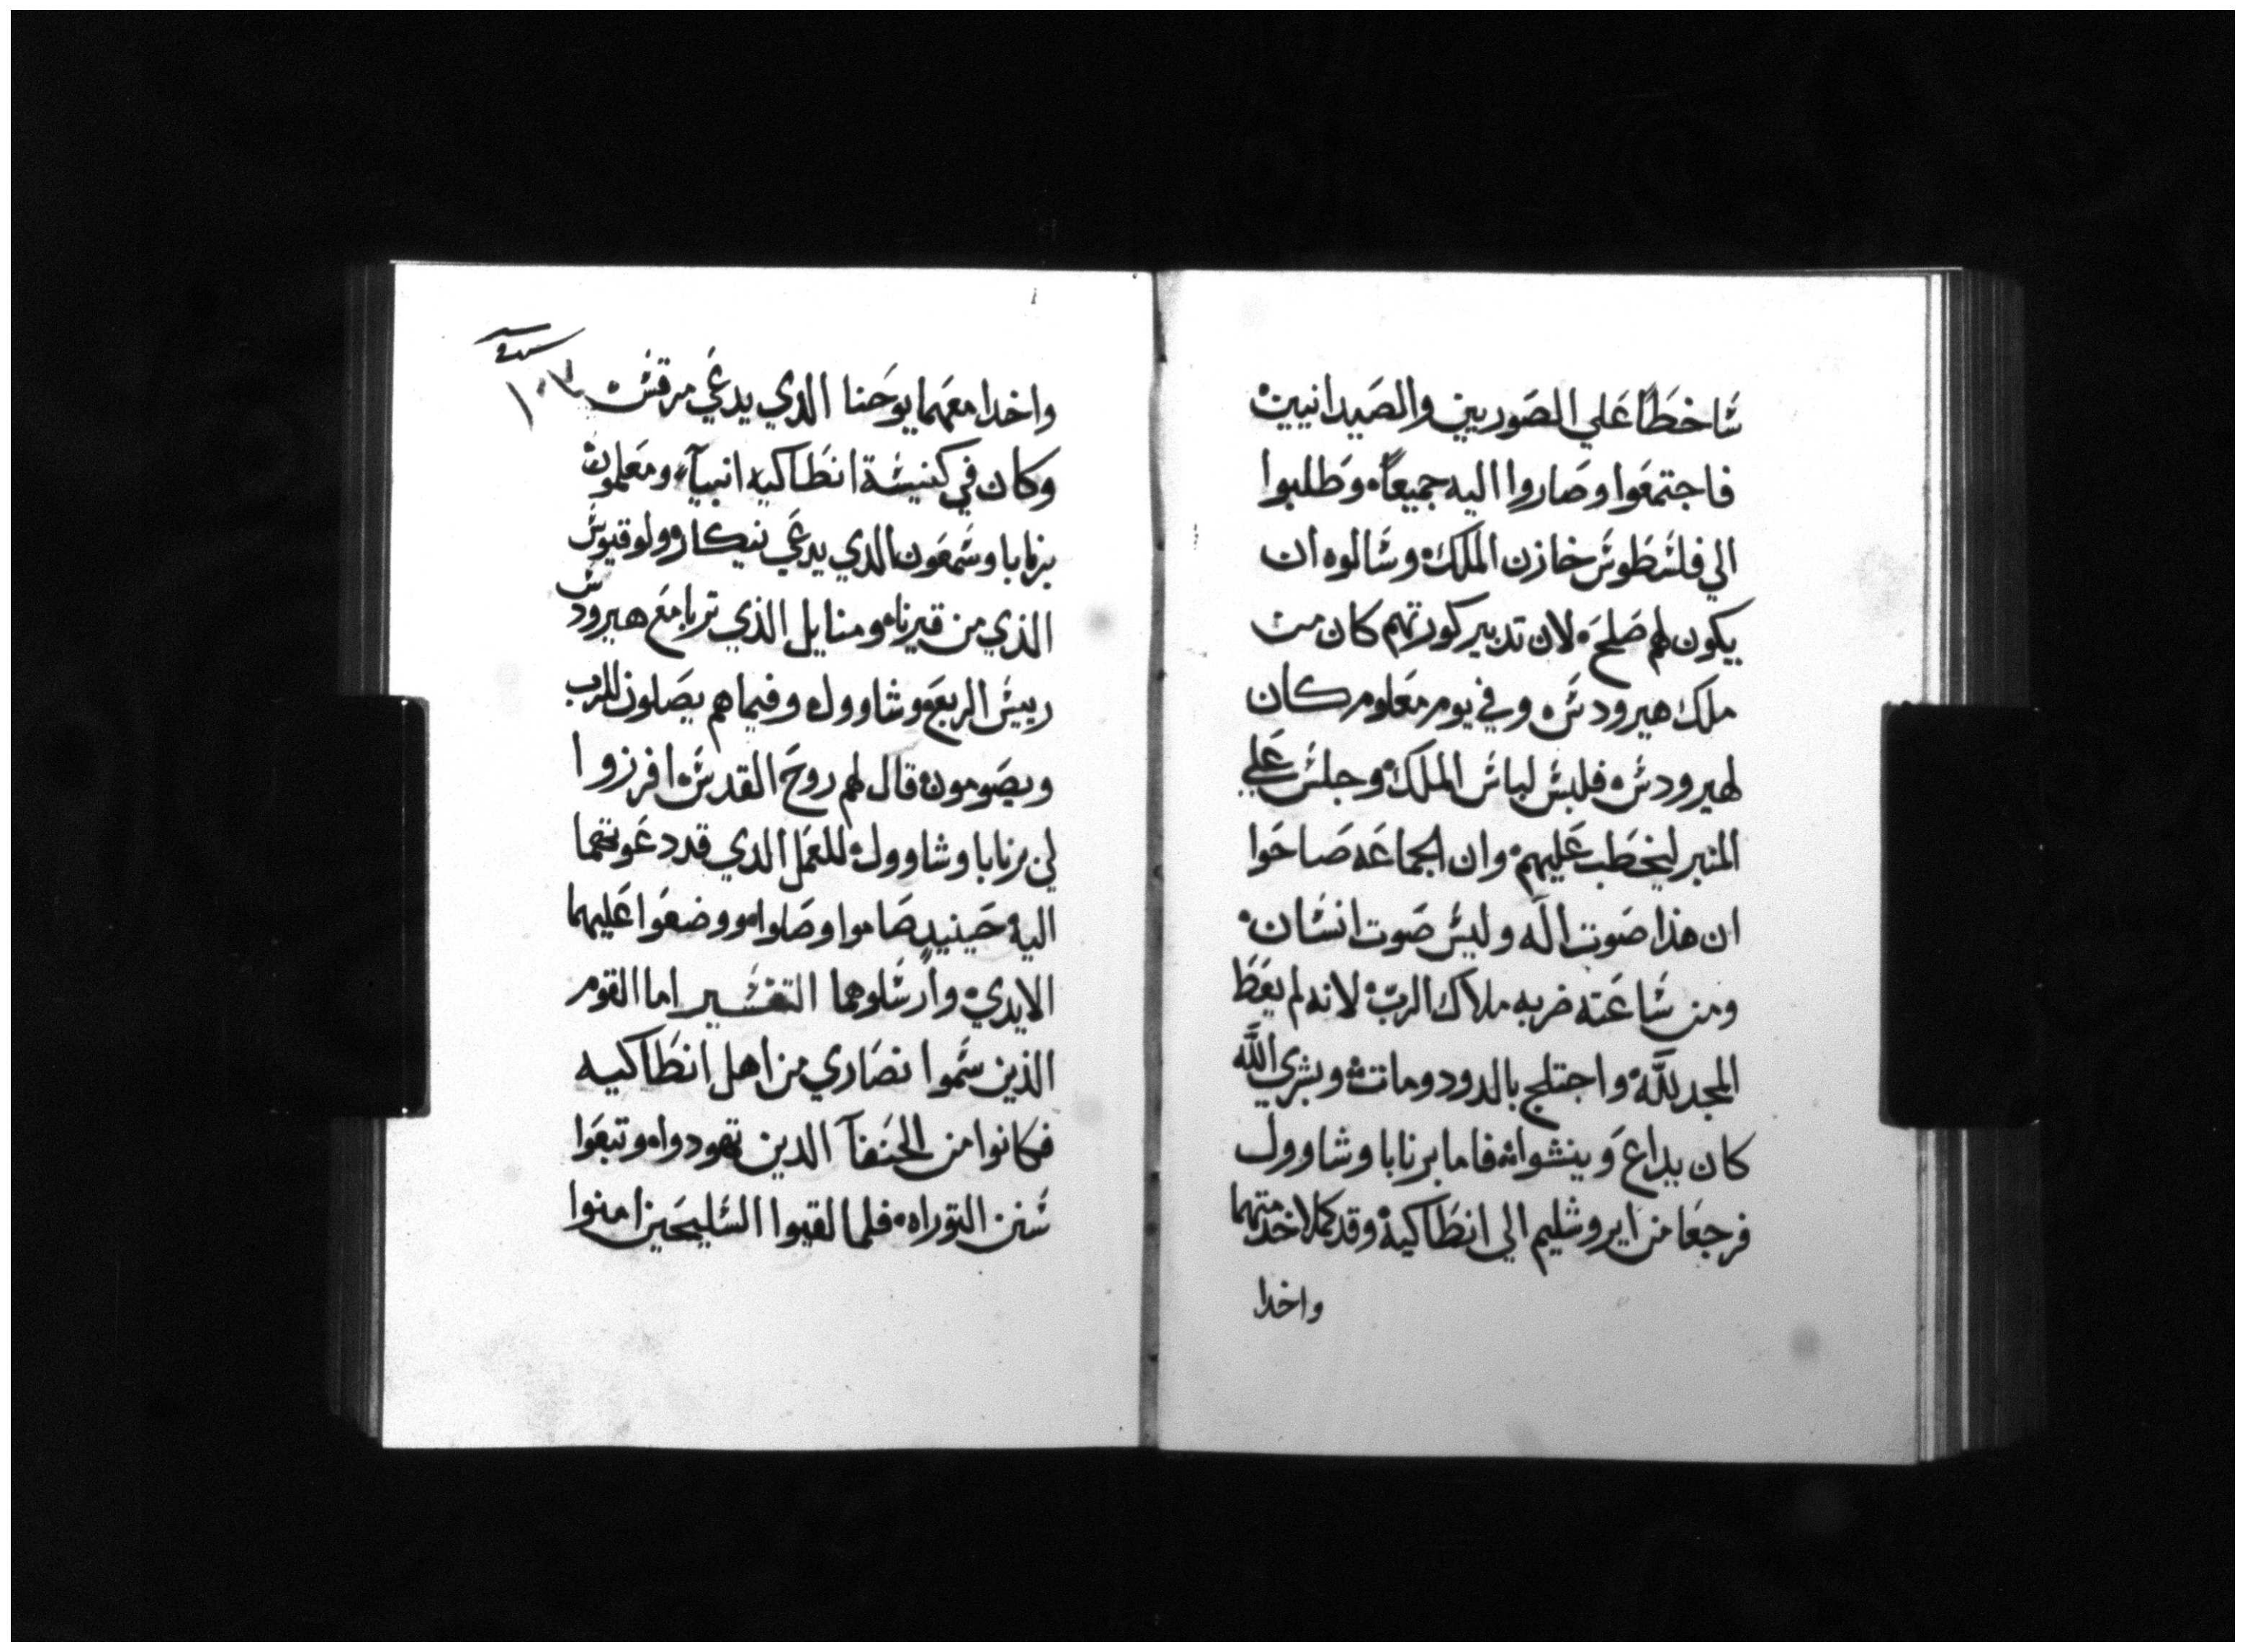 شاخطًا علي الصوريين والصيدانيين
فاجتمعوا وصاروا اليه جميعاً، وطلبوا
الي فلسطوس خازن الملك، وسالوه ان
يكون لهم صلح، لان تدبير كورتهم كان من
ملك هيرودس، وفي يوم معلوم كان
لهيرودس، فلبس لباس الملك، وجلس علي
المنبر ليخطب عليهم، وان الجماعه صاحوا
ان هذا صوت اله وليس صوت انسان،
ومن ساعته ضربه ملاك الرب، لانه لم يعط
المجد لله، واجتلج بالدود ومات، وبشري الله
كان يداع وينشوا، فاما برنابا وشاوول
فرجعا من ايروشليم الي انطاكية، وقد كملا خدمتهما
واخدا
واخدا معهما يوحنا الدي يدعي مرقس،
١٠٧
وكان في كنيسة انطاكيه انبيآء، ومعلمون
برنابا وسمعون الدي يدعي نيكارو ولوقيوس
الذي من قيرنا، ومنايل الذي تربا مع هيرودس
رييس الربع، وشاوول، وفيما هم يصلون للرب
ويصومون، قال لهم روح القدس، افرزوا
لي برنابا وشاوول، للعمل الدي قد دعوتهما
اليه، حينيدٍ صاموا وصلوا، ووضعوا عليهما
الايدي، وارسلوهما التفسير اما القوم
الذين سموا نصاري من اهل انطاكيه
فكانوا من الحنفآ الدين تهودوا، وتبعوا
سنن التوراه، فلما لقيوا السليحين امنوا